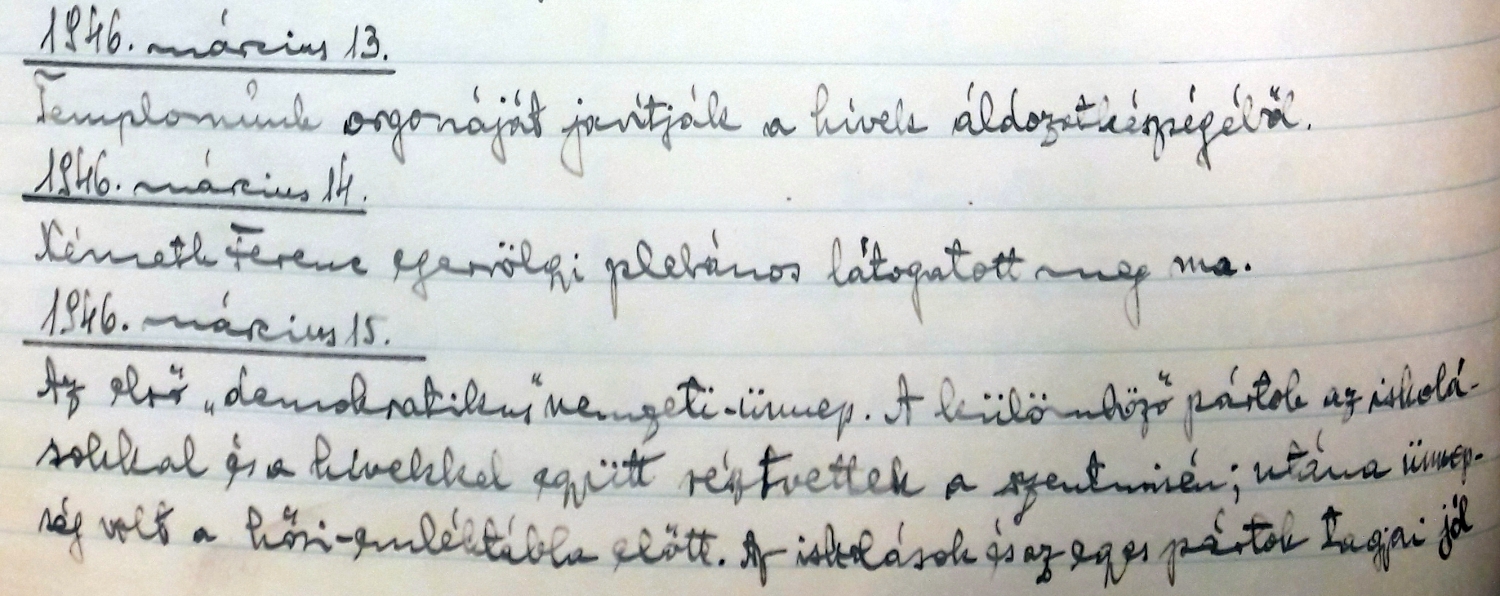 1946. március 13.
Templomunk orgonáját javítják a hívek áldozatkészségéből.
1946. március 14.
Németh Ferenc egervölgyi plebános látogatott meg ma.
1946. március 15.
Az első „demokratikus" nemzeti-ünnep. A különböző pártok az iskolá-
sokkal és a hívekkel együtt résztvettek a szentmisén; utána ünnep-
ség volt a hősi-emléktábla előtt. Az iskolások és az egyes pártok tagjai jól